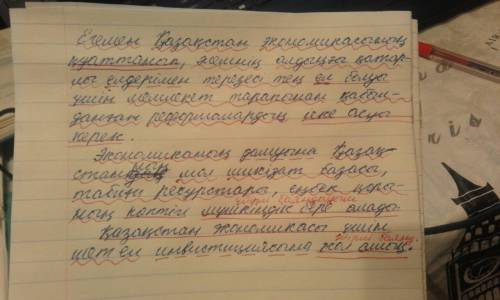 Егемен Қазақстан экономикасының
қуаттанып, әлемнің алдыңғы қатар-
лы елдерімен терезесі тең ел болуы
үшін мемлекет тарапынан қабыл-
данған реформалардың іске асуы
керек.
Экономиканың дамуына Қазақ-
станның мол шикізат базасы,
табиғи ресурстары, еңбек қоры-
ның көптігі мүмкіндік бере алады.
Қазақстан экономикасы үшін
шетел инвестициясына жол ашық.